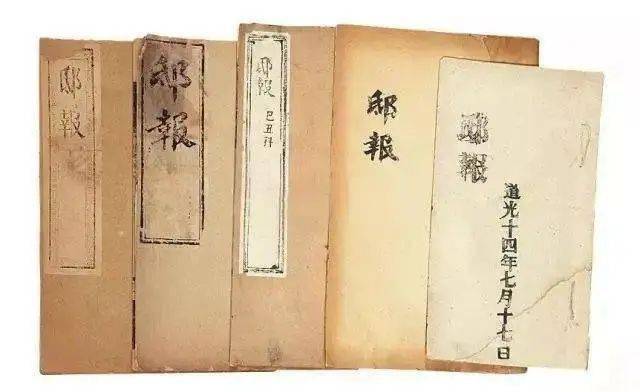 邸報
邸報
邸報
己丑拜
邸報
邸報
道光十四年七月十七日